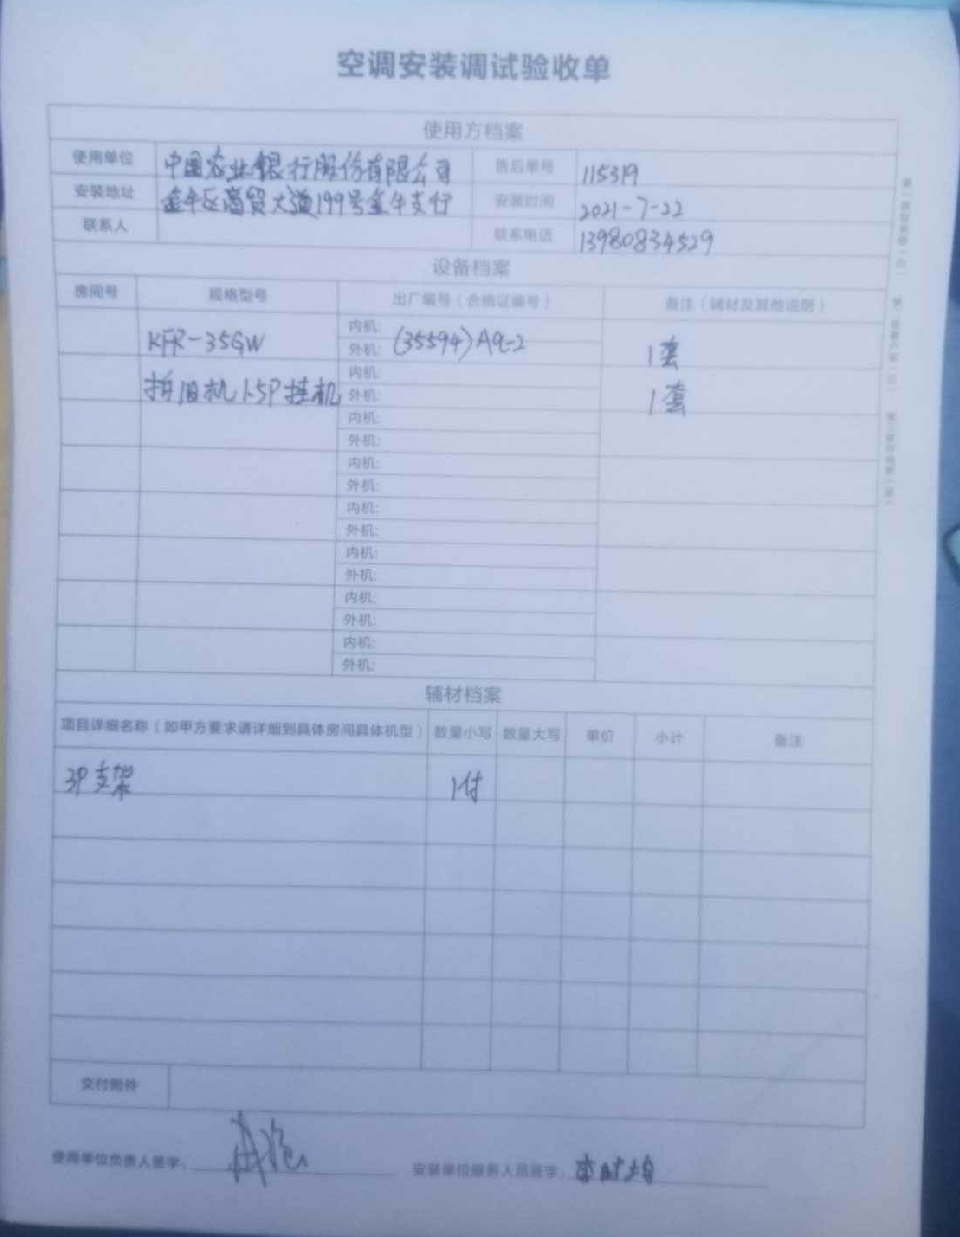 空调安装调试验收单
使用方档案
使用单位 中国农业银行股份有限公司 售后单号 115319
安装地址 金牛区商贸大道199号金牛支行 安装时间 2021-7-22
联系人 联系电话 13980834529
设备档案
房间号 规格型号 出厂编号（合格证编号） 备注（辅材及其他说明）
KFR-35GW 内机: 1套
外机: (35594)Aa-2
拆旧机1.5P挂机 内机: 1套
外机:
内机:
外机:
内机:
外机:
内机:
外机:
内机:
外机:
内机:
外机:
内机:
外机:
辅材档案
项目详细名称（如甲方要求请详细到具体房间具体机型） 数量小写 数量大写 单价 小计 备注
3P支架 1付
交付附件
使用单位负责人签字: 安装单位服务人员签字: